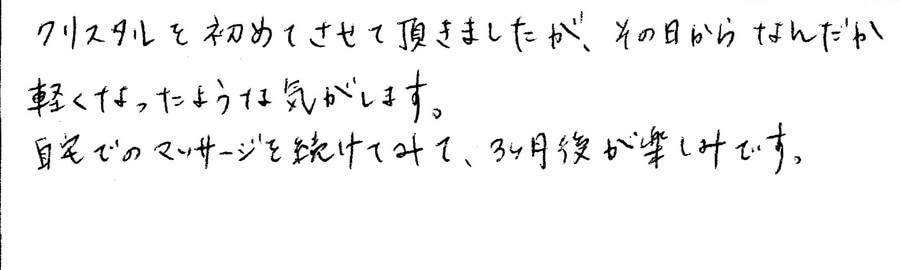 クリスタルを初めてさせて頂きましたが、その日からなんだか
軽くなったような気がします。
自宅でのマッサージを続けてみて、3ヶ月後が楽しみです。